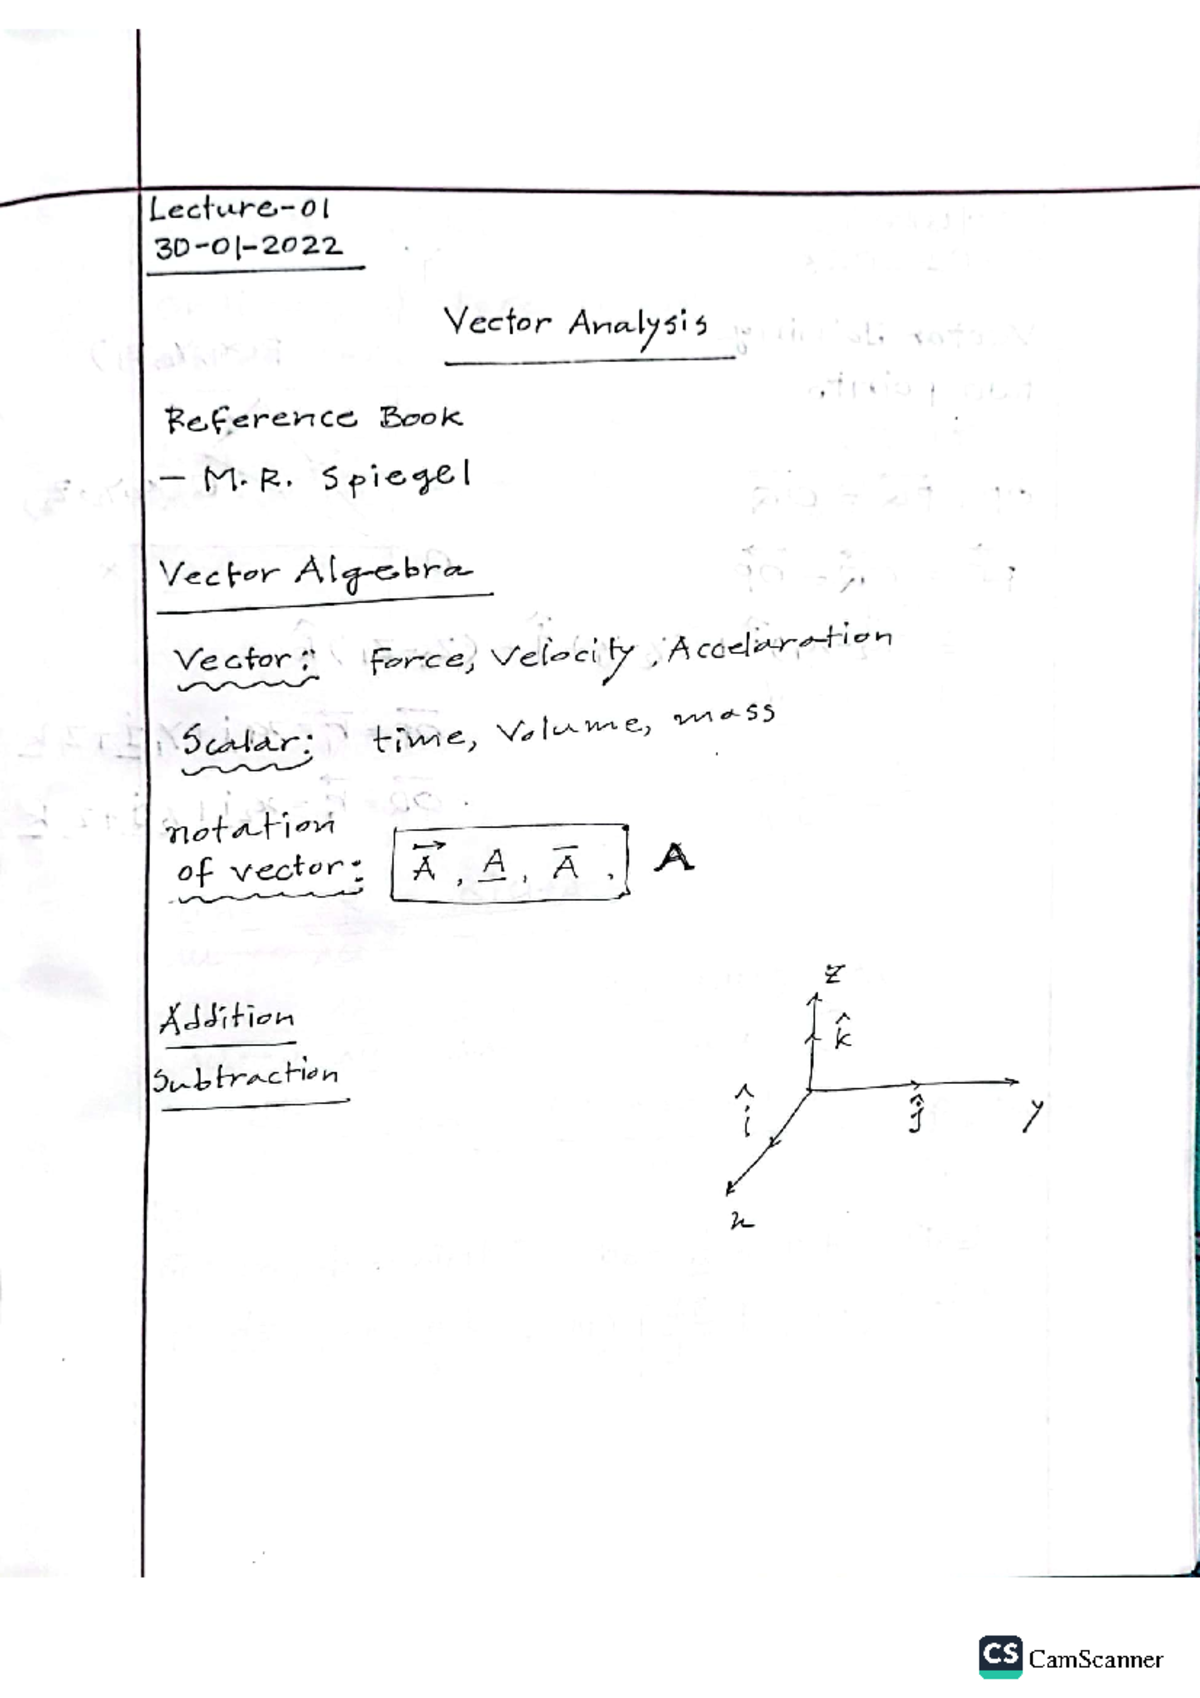 Lecture-01
30-01-2022
Vector Analysis
Reference Book
- M.R. Spiegel
Vector Algebra
Vector: Force, Velocity, Accelaration
Scalar: time, Volume, mass
notation
of vector: A⃗, A̲, A̅, A
Addition
Subtraction
z
k̂
î
ĵ
y
x
CS CamScanner